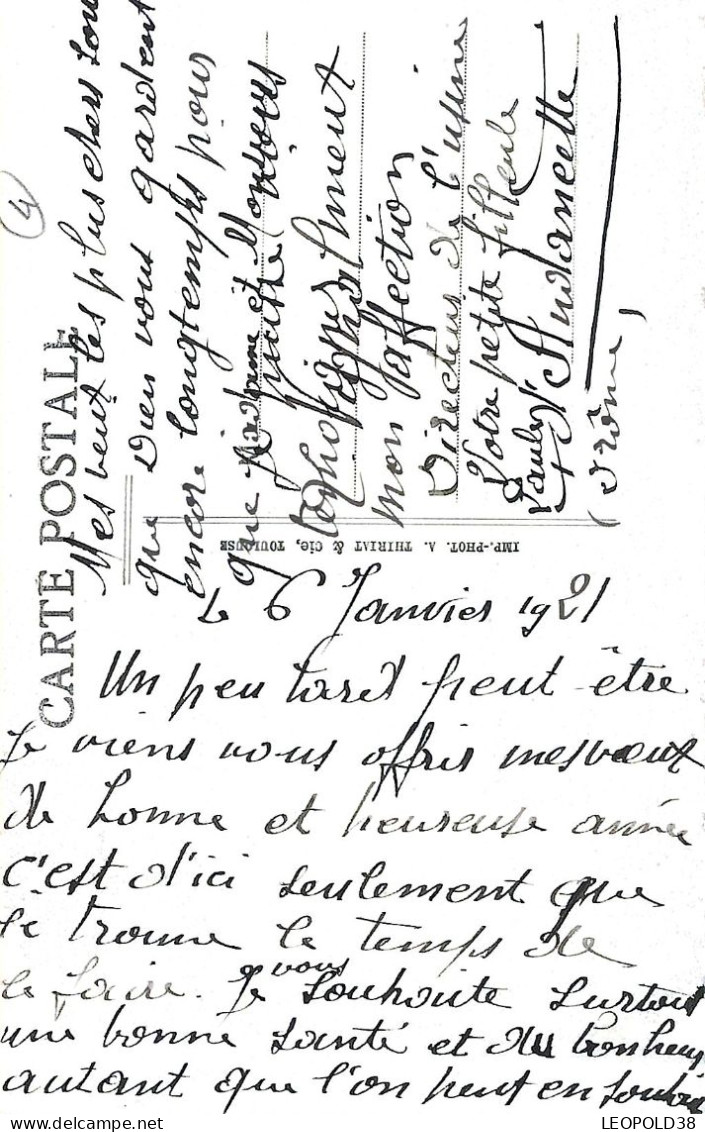 CARTE POSTALE
IMP.-PHOT. A. THIRIAT & Cie, TOULOUSE
Le 6 Janvier 1921
Un peu tard peut être
je viens vous offrir mes vœux
de bonne et heureuse année
c'est d'ici seulement que
je trouve le temps de
le faire. Je vous souhaite surtout
une bonne santé et du bonheur
autant que l'on peut en souhai
Mes vœux les plus chers sont
que Dieu vous gardent
encore longtemps pour
que je puisse toujours
mon affection
Votre petite filleule
Madame et Monsieur
Directeur de l'usine
St
(Drôme)
4
LEOPOLD38